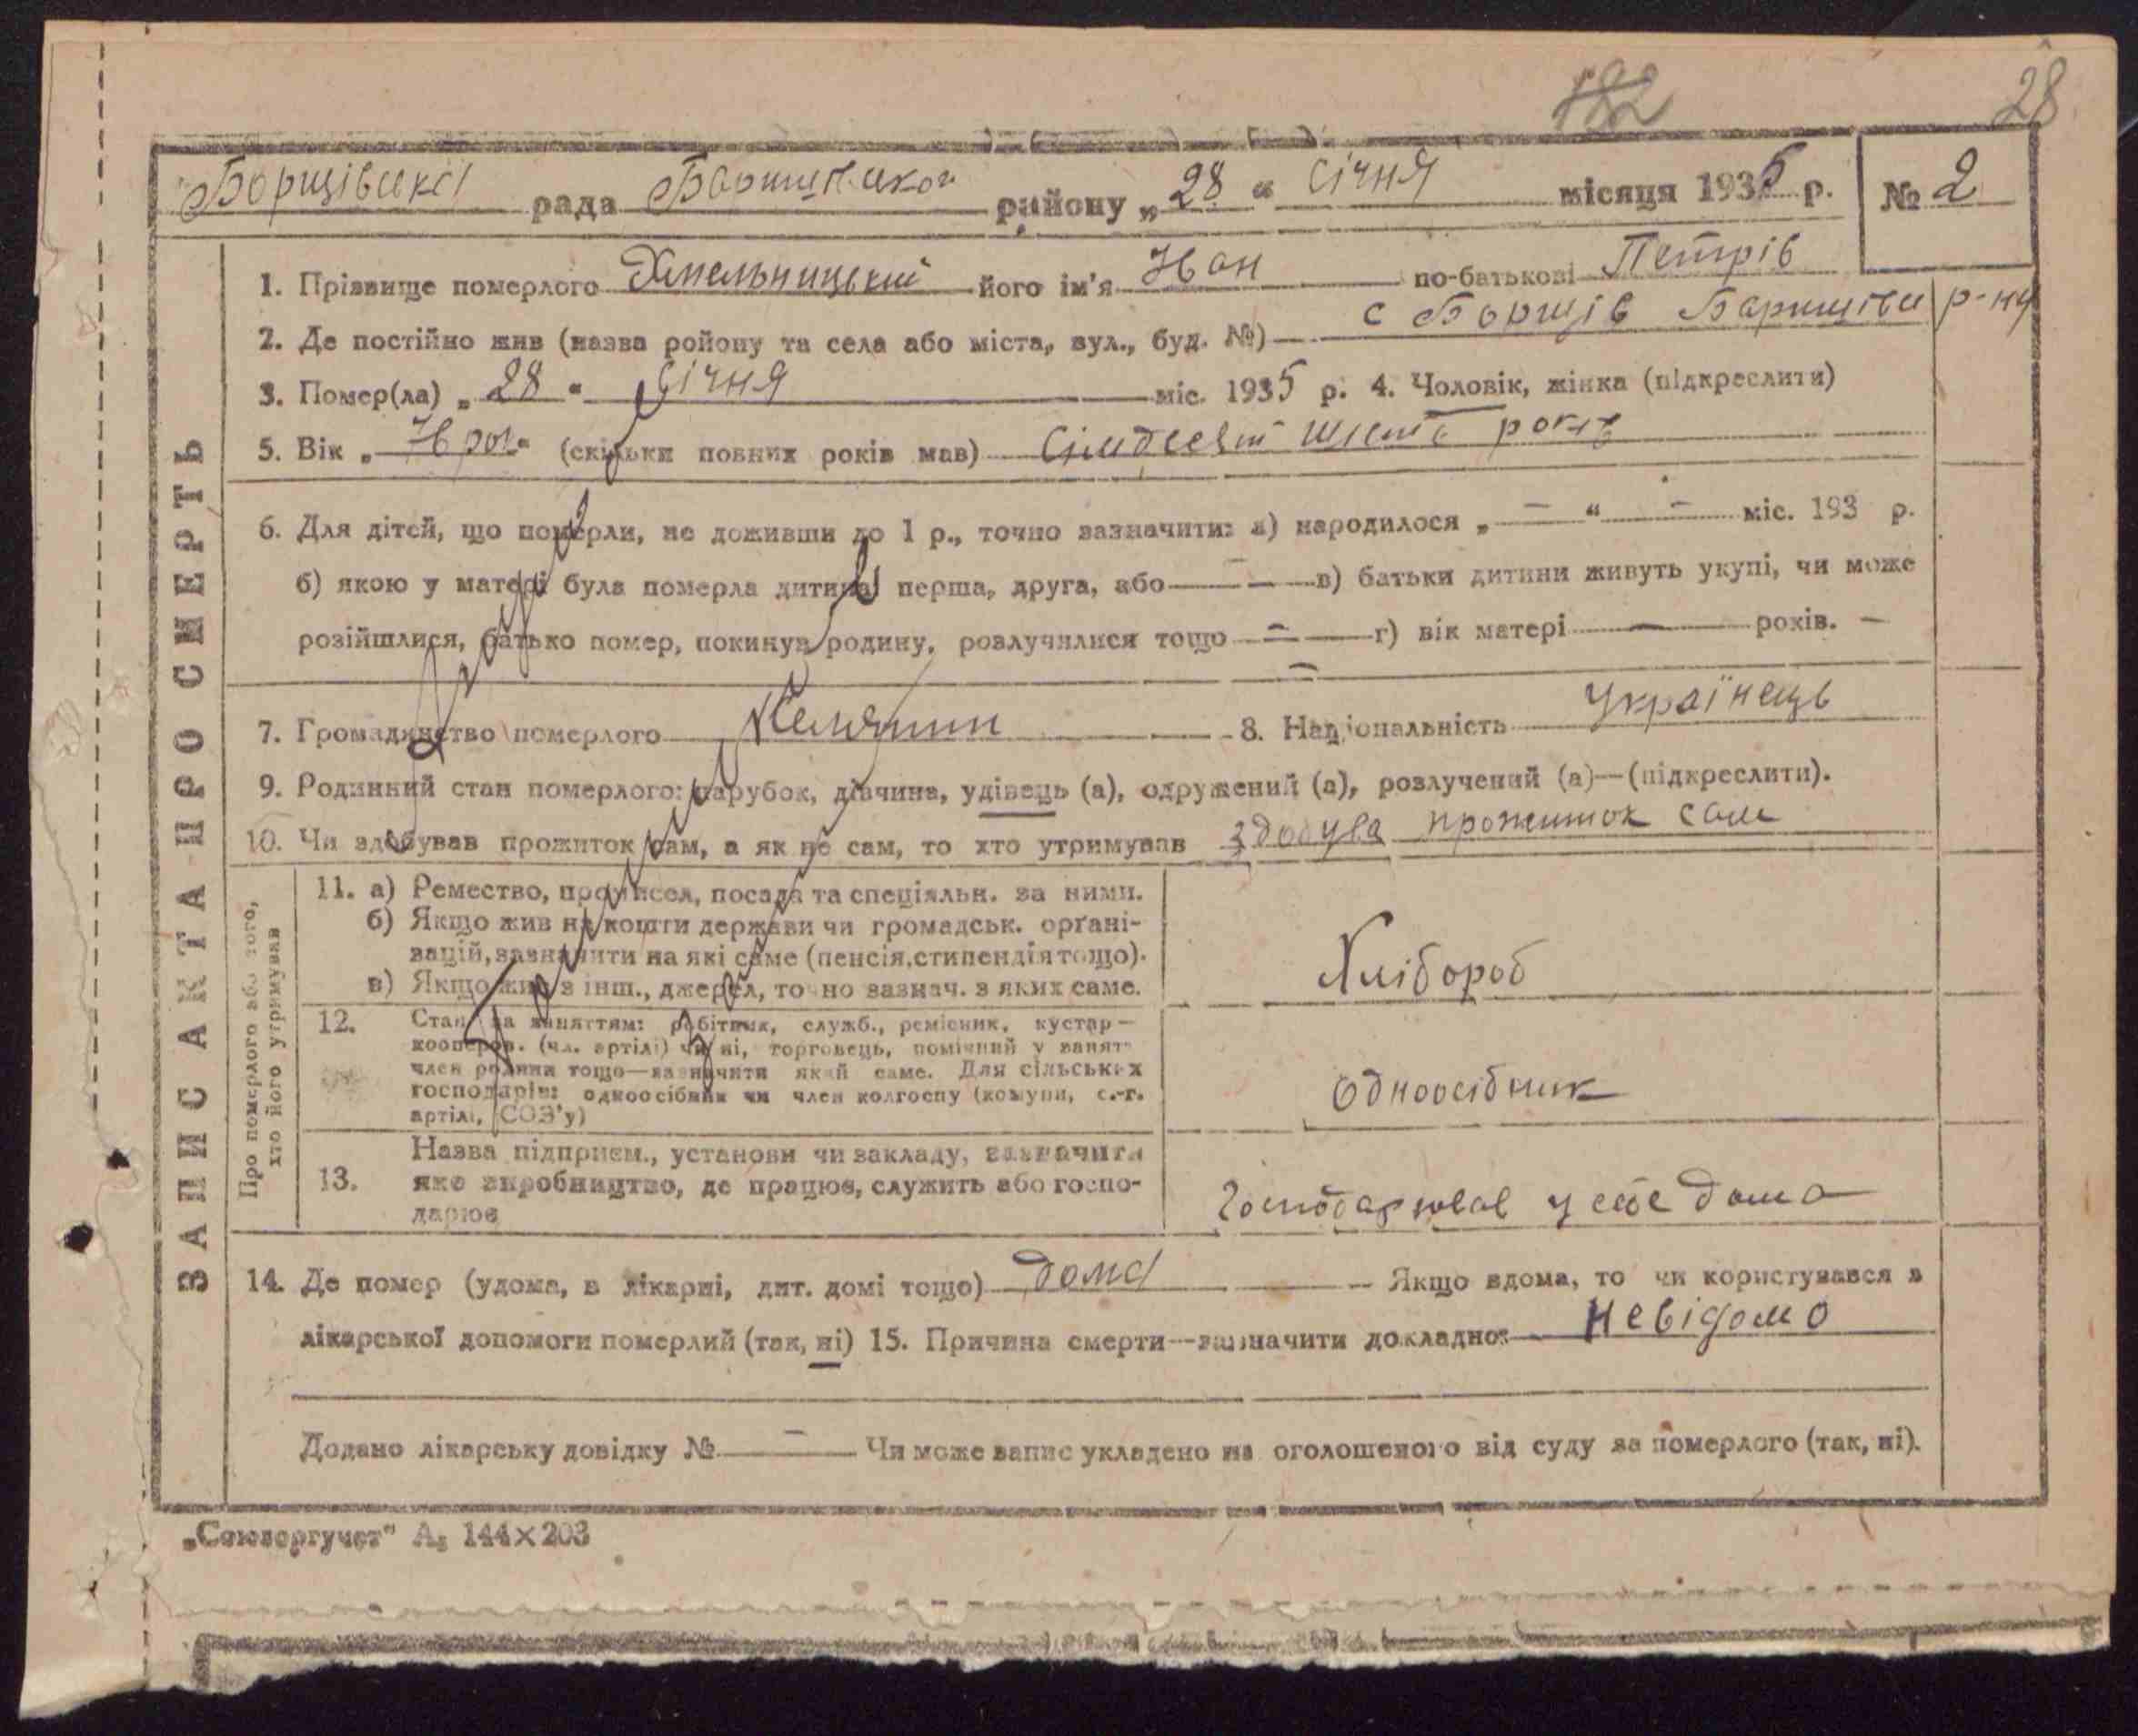 28
Борщівська рада Баришівської району „28“ січня місяця 1935 р. № 2
ЗАПИС АКТА ПРО СМЕРТЬ
1. Прізвище померлого Хмельницький його ім'я Іван по-батькові Петрів
2. Де постійно жив (назва ройону та села або міста, вул., буд. №) с Борщів Баришівсь р-ну
3. Помер(ла) „28“ Січня міс. 1935 р. 4. Чоловік, жінка (підкреслити)
5. Вік „76 рок“ (скільки повних років мав) Сімдесят шість років
6. Для дітей, що померли, не доживши до 1 р., точно зазначити: а) народилося „ – “ – міс. 193 р.
б) якою у матері була померла дитина: перша, друга, або — в) батьки дитини живуть укупі, чи може
розійшлися, батько помер, покинув родину, розлучилися тощо — г) вік матері — років. —
7. Громадянство померлого 8. Національність Українець
9. Родинний стан померлого: парубок, дівчина, удівець (а), одружений (а), розлучений (а)—(підкреслити).
10. Чи здобував прожиток сам, а як не сам, то хто утримував здобува прожиток сам
Про померлого або того,
хто його утримував
11. а) Ремество, промисел, посада та спеціяльн. за ними.
б) Якщо жив на кошти держави чи громадськ. орґані-
зацій, зазначити на які саме (пенсія, стипендія тощо).
в) Якщо жив з інш., джерел, точно зазнач. з яких саме.
Хлібороб
12. Стан за заняттям: робітник, служб., ремісник, кустар—
кооперов. (чл. артілі) чи ні, торговець, помічний у занятт
член родини тощо—зазначити який саме. Для сільських
господарів: одноосібник чи член колгоспу (комуни, с.-г.
артілі, СОЗ'у)
Одноосібник
13. Назва підприєм., установи чи закладу, зазначити
яке виробництво, де працює, служить або госпо-
дарює
Господарював у себе дома
14. Де помер (удома, в лікарні, дит. домі тощо) дома — Якщо вдома, то чи користувався з
лікарської допомоги померлий (так, ні) 15. Причина смерти—зазначити докладно: Невідомо
Додано лікарську довідку № – Чи може запис укладено на оголошеного від суду за померлого (так, ні).
„Союзоргучет“ А5 144×203